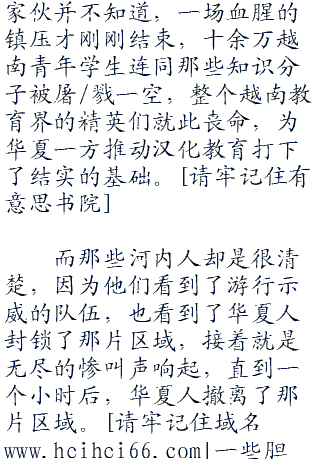 家伙并不知道，一场血腥的
镇压才刚刚结束，十余万越
南青年学生连同那些知识分
子被屠/戮一空，整个越南教
育界的精英们就此丧命，为
华夏一方推动汉化教育打下
了结实的基础。[请牢记住有
意思书院]
而那些河内人却是很清
楚，因为他们看到了游行示
威的队伍，也看到了华夏人
封锁了那片区域，接着就是
无尽的惨叫声响起，直到一
个小时后，华夏人撤离了那
片区域。[请牢记住域名
www.hcihci66.com]一些胆